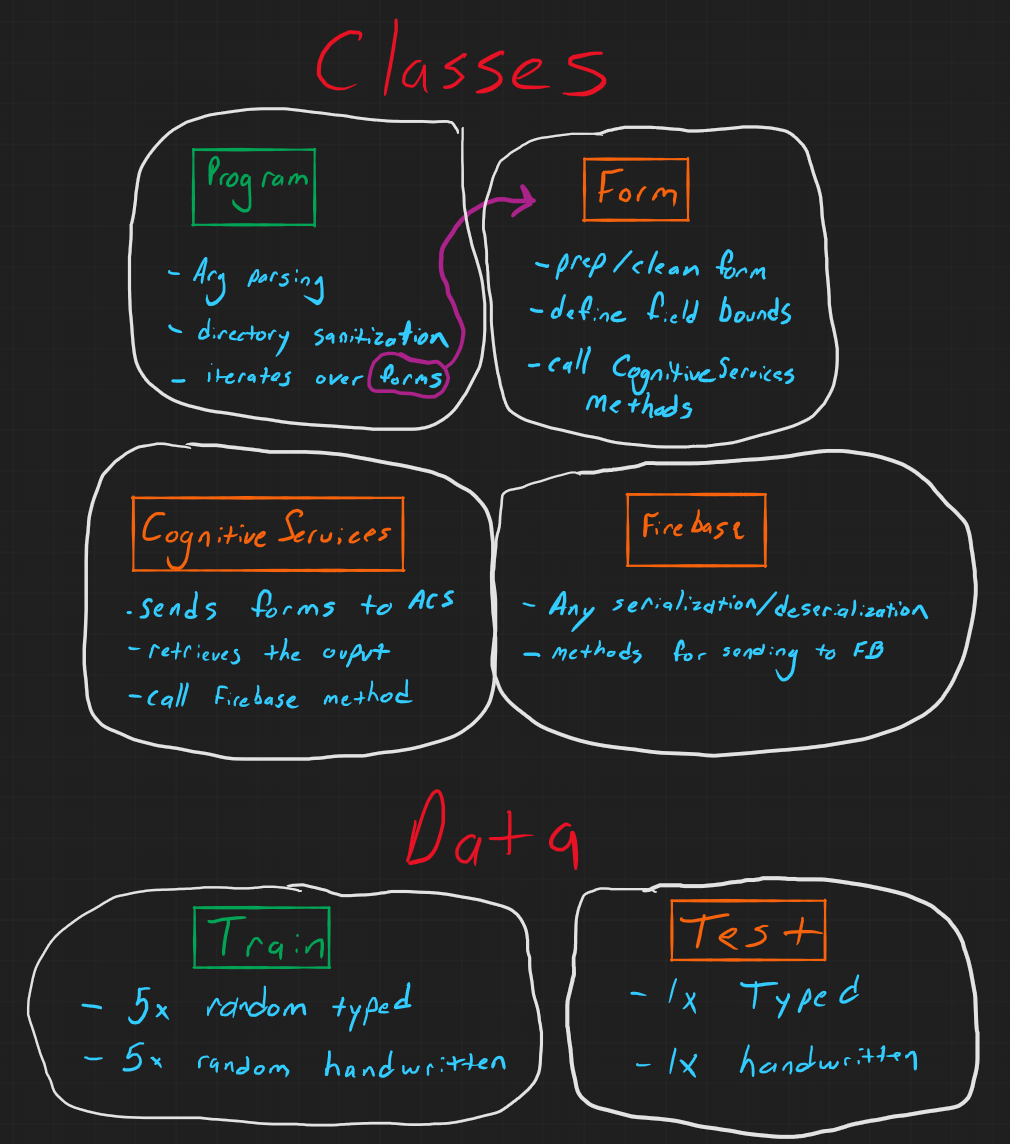 Classes
Program
- Arg parsing
- directory sanitization
- iterates over forms
Form
- prep/clean form
- define field bounds
- call CognitiveServices
methods
Cognitive Services
- sends forms to ACS
- retrieves the ouput
- call Firebase method
Firebase
- Any serialization/deserialization
- methods for sending to FB
Data
Train
- 5x random typed
- 5x random handwritten
Test
- 1x Typed
- 1x handwritten